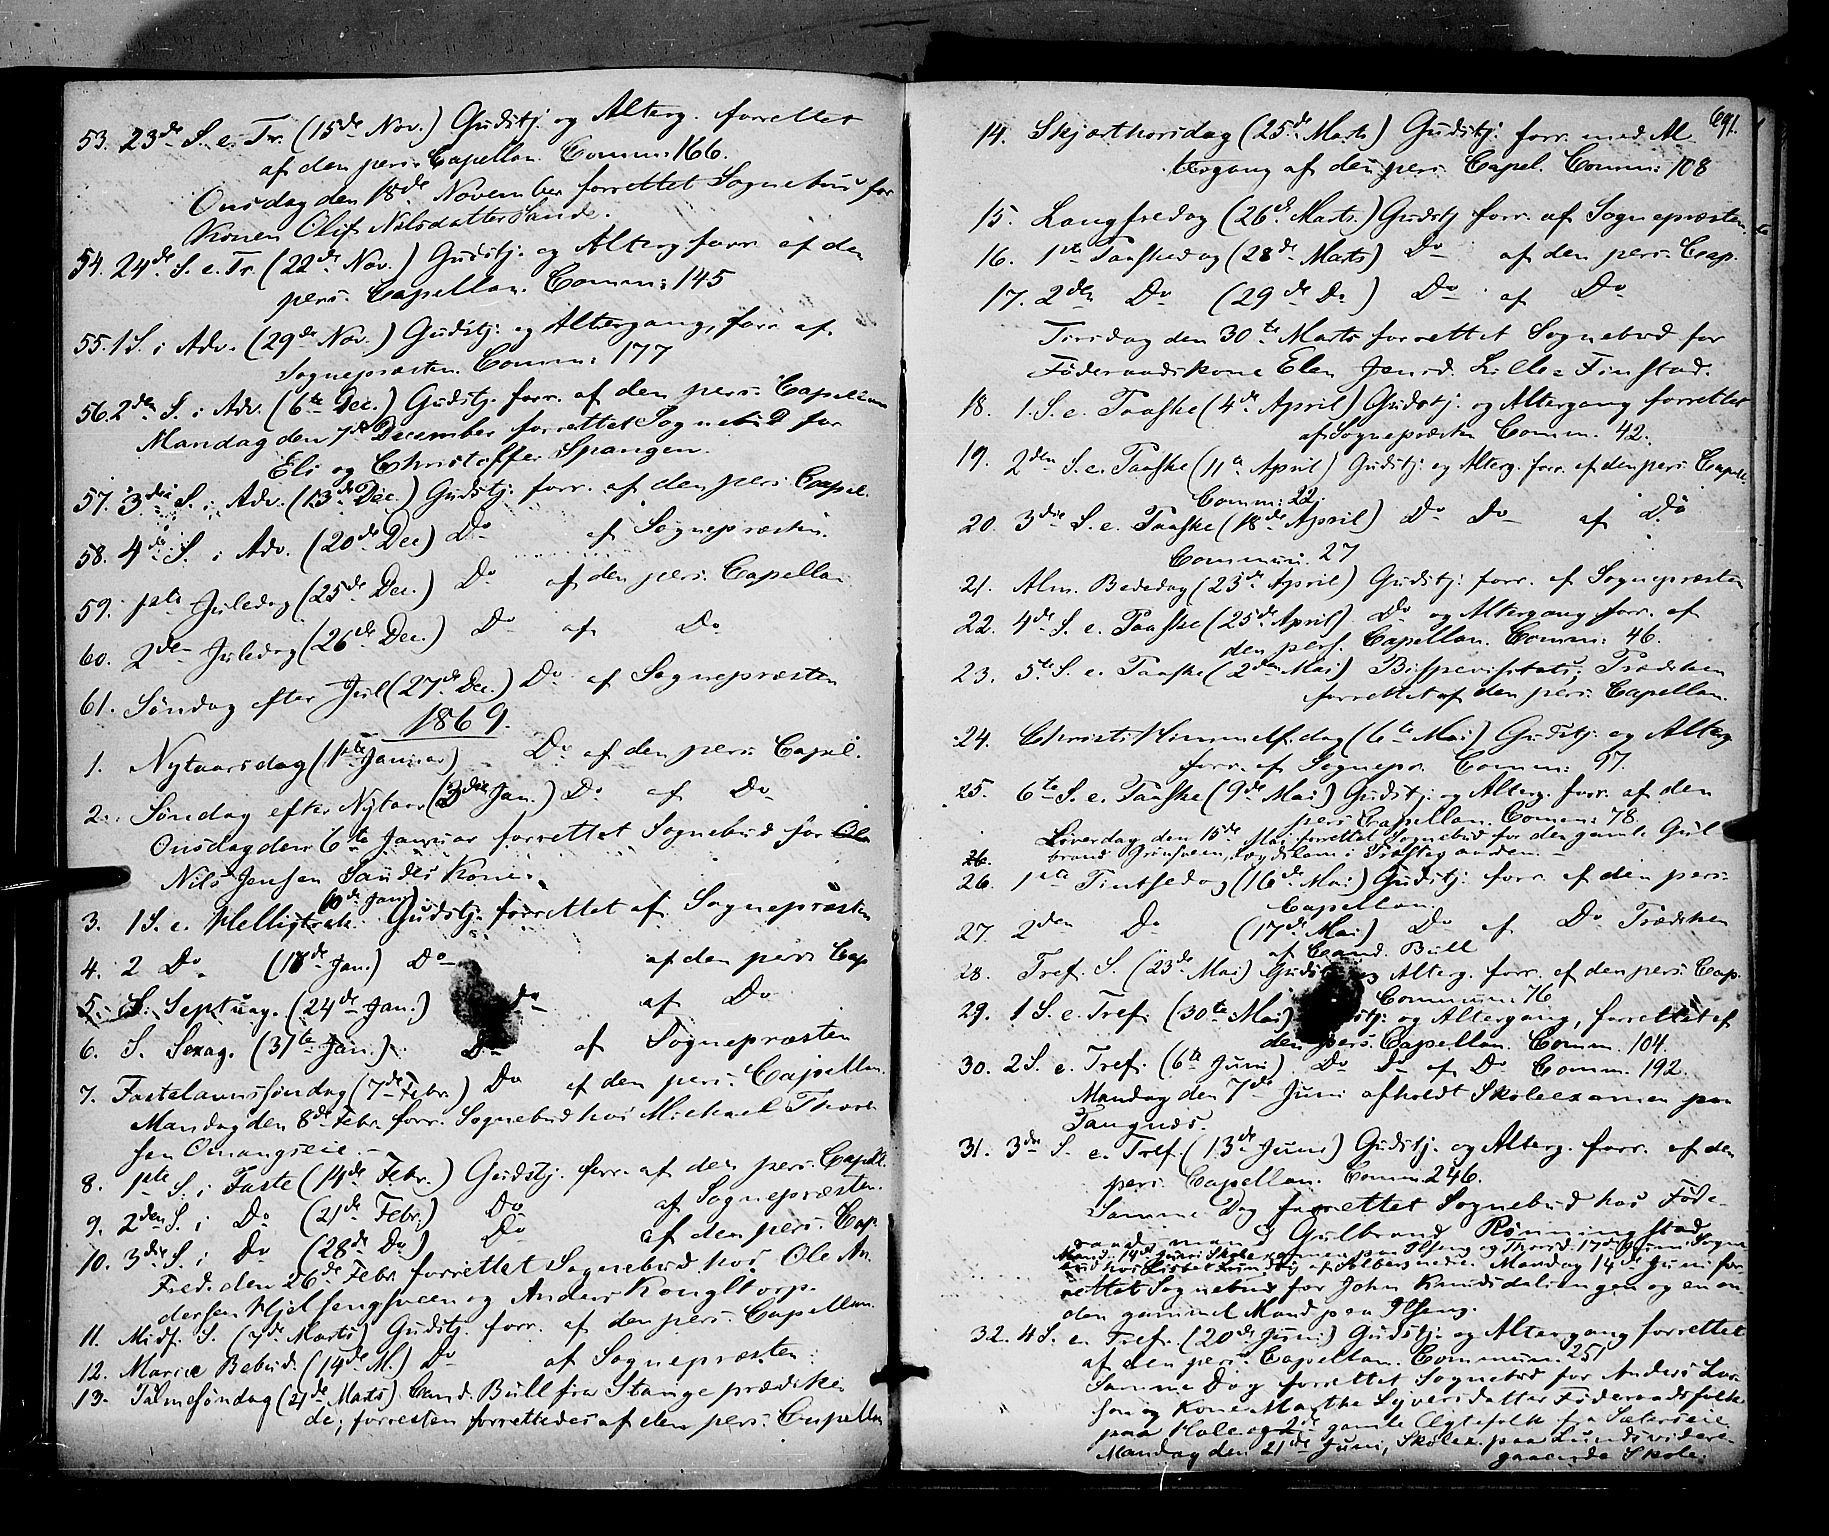 53. 23de S. e. Tr. (15de Nov.) Gudstj. og Alterg. forrettet
af den pers. Capellan. Comm: 166.
Onsdag den 18de November forrettet Sognebud for
Konen Olif Nilsdatter Sande.
54. 24de S. e. Tr. (22de Nov.) Gudstj. og Alterg forr. af den
pers. Capellan. Comm: 145
55. 1 S. i Adv. (29de Nov.) Gudstj. og Altergang, forr. af
Sognepræsten. Comm: 177
56. 2den S. i Adv. (6te Dec.) Gudstj. forr. af den pers. Capellan
Mandag den 7de December forrettet Sognebud for
Eli og Christoffer Spangen.
57. 3die S. i Adv. (13de Dec.) Gudstj. forr. af den pers. Capel.
58. 4de S. i Adv. (20de Dec) Do af Sognepræsten.
59. 1ste Juledag (25de Dec.) Do af den pers. Capellan
60. 2den Juledag (26de Dec.) Do af Do
61. Søndag efter Jul (27de Dec.) Do af Sognepræsten
1869.
1. Nytaarsdag (1ste Januar) Do af den pers. Capel.
2. Søndag efter Nytaar (3die Jan.) Do af Do
Onsdag den 6te Januar forrettet Sognebud for Ole
Nils Jensen Sandes Kone.
3. 1 S. e. Helligtrek. (10de Jan) Gudstj. forrettet af Sognepræsten
4. 2 Do (17de Jan) Do af den pers Cap
5. S. Septuag. (24de Jan.) do af Do
6. S. Sexag. (31te Jan.) Do af Sognepræsten
7. Fastelavnssøndag (7de Febr.) Do af den pers. Capellan.
Mandag den 8de Febr. forr. Sognebud hos Michael Thor
sen Onangseie.
8. 1ste S. i Faste (14de Febr.) Gudstj. forr. af den pers. Capell.
9. 2den S. i Do (21de Febr.) Do af Sognepræsten.
10. 3die S. i Do (28de Do) Do af den pers. Cap.
Fred. den 26de Febr forrettet Sognebud hos Ole An
dersen Hjelsengsveen og Anders Kongltorp.
11. Midf. S. (7de Marts) Gudstj. forr. af den pers. Capellan.
12. Mariæ Bebud. (14de M.) Do af Sognepræsten.
13. Palmesøndag (21de Marts) Cand. Bull fra Stange prædike
de, forresten forrettedes af den pers. Capellan
691.
14. Skjærthorsdag (25de Marts) Gudstj. forr. med Al
tergang af den pers. Capel. Comm: 108
15. Langfredag (26de Marts.) Gudstj forr. af Sognepræsten.
16. 1ste Paaskedag (28de Marts) Do af den pers. Cap.
17. 2den Do (29de Do) Do af Do
Tirsdag den 30te Marts forrettet Sognebud for
Føderaadskone Elen Jensd. Lille-Finstad.
18. 1. S. e. Paaske (4de April) Gudstj. og Altergang forrettet
af Sognepræsten Comm. 42.
19. 2den S. e. Paaske (11te April) Gudstj. og Alterg. forr. af den pers. Capell.
Comm: 22.
20. 3die S. e. Paaske (18de April) Do Do af Do
Commun. 27
21. Alm. Bededag (23de April) Gudstj. forr. af Sognepræsten
22. 4de S. e. Paaske (25de April) Do og Altergang forr. af
den pers. Capellan. Comm: 46.
23. 5te S. e. Paaske (2den Mai) Bispevisitats; Prædiken
forrettet af den pers. Capellan.
24. Christi Himmelf.dag (6te Mai) Gudstj. og Alterg
forr. af Sognepr. Comm: 97.
25. 6te S. e. Paaske (9de Mai) Gudstj. og Alterg. forr. af den
pers Capellan. Comm: 78.
Løverdag den 15de Mai forrettet Sognebud for den gamle Gul
26. brand
26. 1ste Pintsedag (16de Mai) Gudstj. forr. af den pers.
Capellan.
27. 2den Do (17de Mai) Do af Do Prædiken
af Cand. Bull
28. Tref. S. (23de Mai) Gudstj. og Alterg. forr. af den pers. Cap.
Commun: 76
29. 1 S. e. Tref. (30te Mai) og Altergang, forrettet af
den pers. Capellan. Comm. 104.
30. 2 S. e. Tref. (6te Juni) Do Do af Do Comm. 192.
Mandag den 7de Juni afholdt Skoleexamen paa
Tangnæs.
31. 3die S. e. Tref. (13de Juni) Gudstj. og Alterg. forr. af den
pers. Capellan. Comm 246.
Samme Dag forrettet Sognebud hos Føde-
raadsmand Gulbrand Rønningstad
Mand. 14de Juni Skoleexamen paa Ilseng og Thorsd. 17de Juni Sogne
bud hos Lisbet Mandag 14de Juni for-
rettet Sognebud for John Knudsdalingen og en an
den gammel Mand paa Ilseng.
32. 4 S. e. Tref. (20de Juni) Gudstj. og Altergang forrettet
af den pers. Capellan. Commun. 251
Samme Dag forrettet Sognebud for Anders Lar
sen og Kone Marthe Syversdatter Føderaadsfolk
paa Hole og 2de gamle Ægtefolk fra Sæterseie
Mandag den 21de Juni, Skolex. paa Lunds videre-
gaaende Skole.